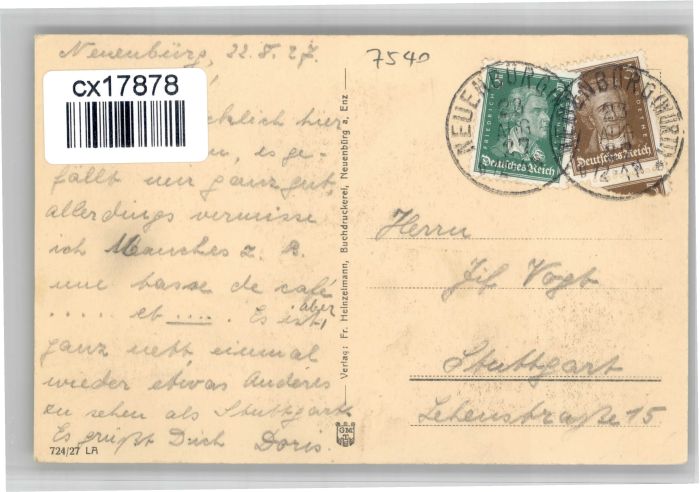 Neuenbürg, 22.8.27.
7540
cx17878
cklich hier
, es ge-
fällt mir ganz gut,
allerdings vermisse
ich Manches z. B.
une tasse de café
..... et ..... Es ist, aber
ganz nett einmal
wieder etwas Anderes
zu sehen als Stuttgart.
Es grüßt Dich Doris.
724/27 LA
Verlag: Fr. Heinzelmann, Buchdruckerei, Neuenbürg a. Enz
NEUENBÜRG
FRIEDRICH
Deutsches Reich
NEUENBÜRG (WÜRTT)
GOETHE
Deutsches Reich
Herrn
Vogt
Stuttgart
Lehenstraße 15